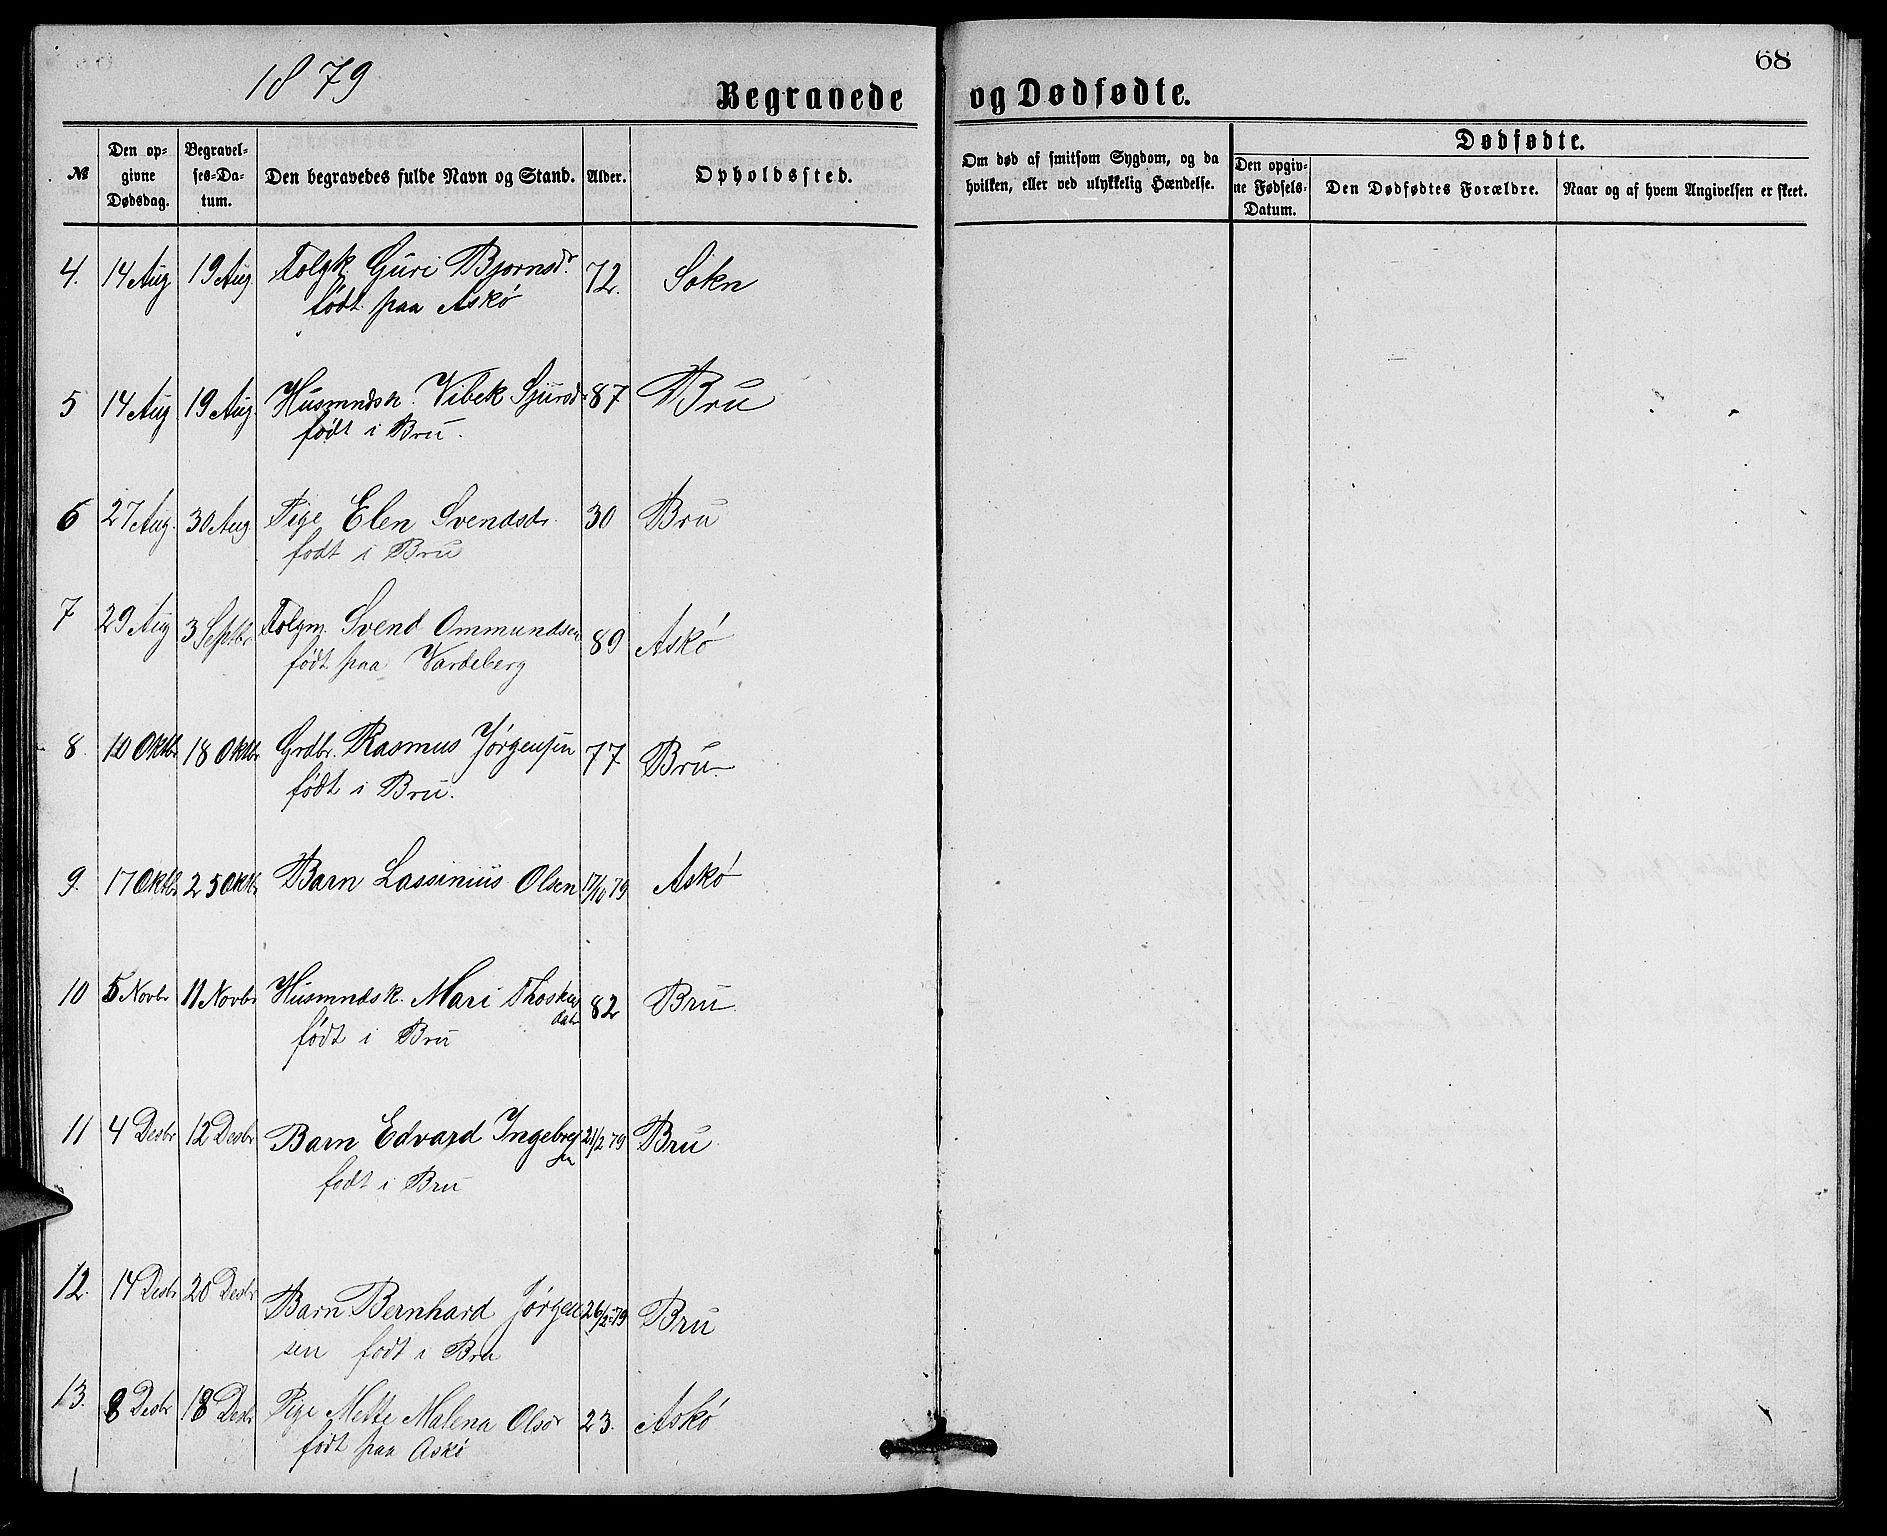 68
1879
Begravede og Dødfødte.
№
Den op-
givne
Dødsdag.
Begravel-
ses-Da-
tum.
Den begravedes fulde Navn og Stand.
Alder.
Opholdssted.
Om død af smitsom Sygdom, og da
hvilken, eller ved ulykkelig Hændelse.
Dødfødte.
Den opgiv-
ne Fødsels-
Datum.
Den Dødfødtes Forældre.
Naar og af hvem Angivelsen er skeet.
4. 14 Aug 19 Aug. Folgk Guri Bjørnsdr. 72. Sokn
født paa Askø
5 14 Aug 19 Aug. Husmndsk. Vibek Sjursdr 87 Bru
født i Bru.
6 27 Aug. 30 Aug Pige Elen Svendsdr. 30 Bru
født i Bru
7 29 Aug 3 Septbr Folgm. Svend Ommundsen 89 Askø
født paa Vardeberg
8. 10 Oktbr 18 Oktbr Grdbr. Rasmus Jørgensen 77 Bru.
født i Bru.
9. 17 Oktbr 25 Oktbr Barn Lassinius Olsen 17/10 79 Askø
10 5 Novbr 11 Novbr Husmndsk. Mari Thoskas 82 Bru.
datr
født i Bru
11 4 Desbr 12 Desbr Barn Edvard Ingebret 21/2 79 Bru
sen
født i Bru
12. 14 Desbr 20 Desbr Barn Bernhard Jørgen 26/2-79 Bru
sen født i Bru
13. 8 Desbr 18 Desbr Pige Mette Malena Olsdr 23. Askø
født paa Askø